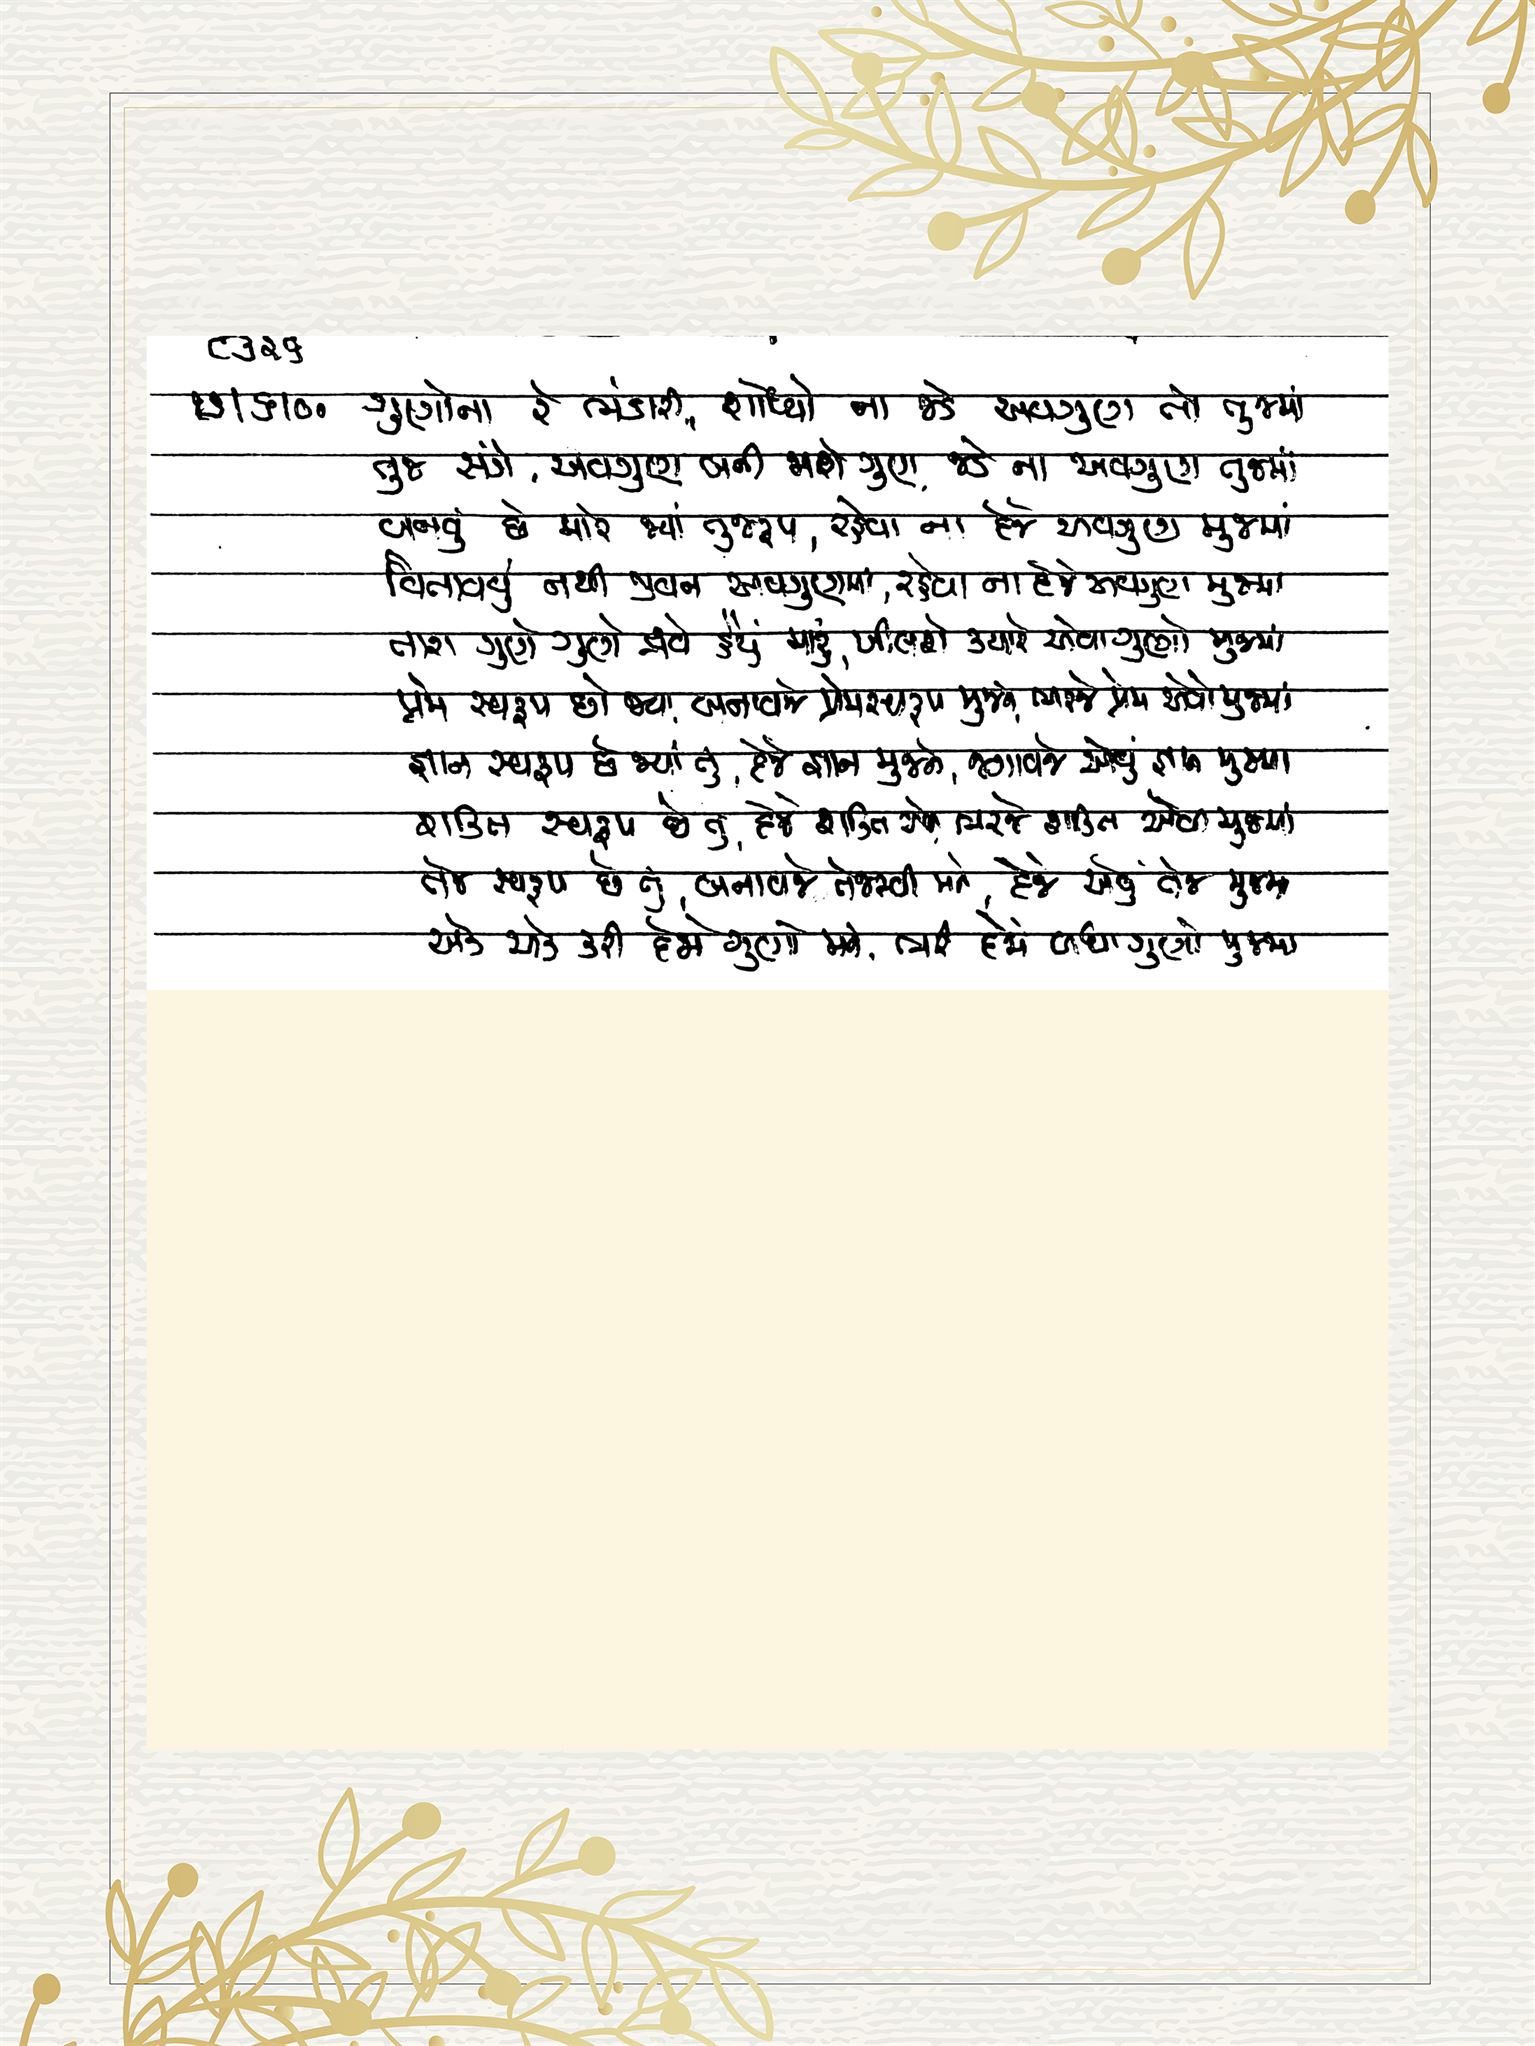 ૮૩૨૬
ગુણોના રે ભંડારી, શોધ્યો ના જડે અવગુણ તો તુજમાં
તુજ સંગે, અવગુણ બની જાશે ગુણ, જડે ના અવગુણ તુજમાં
બનવું છે મારે જ્યાં તુજરૂપ, રહેવા ના દેજે અવગુણ મુજમાં
વિતાવવું નથી જીવન અવગુણમાં, રહેવા ના દેજે અવગુણ મુજમાં
તારા ગુણે ગુણે દ્રવે હૈયું મારું, ખીલશે ક્યારે એવા ગુણો મુજમાં
પ્રેમ સ્વરૂપ છો જ્યાં, બનાવજે પ્રેમસ્વરૂપ મુજને, ભરજે પ્રેમ એવો મુજમાં
જ્ઞાન સ્વરૂપ છે જ્યાં તું, દેજે જ્ઞાન મુજને, જગાવજે એવું જ્ઞાન મુજમાં
શક્તિ સ્વરૂપ છે તું, દેજે શક્તિ ભરજે શક્તિ એવી મુજમાં
તેજ સ્વરૂપ છે તું, બનાવજે તેજસ્વી મને, દેજે એવું તેજ મુજમાં
એક એક કરી દેજે ગુણો મને, ભરી દેજે બધા ગુણો મુજમાં